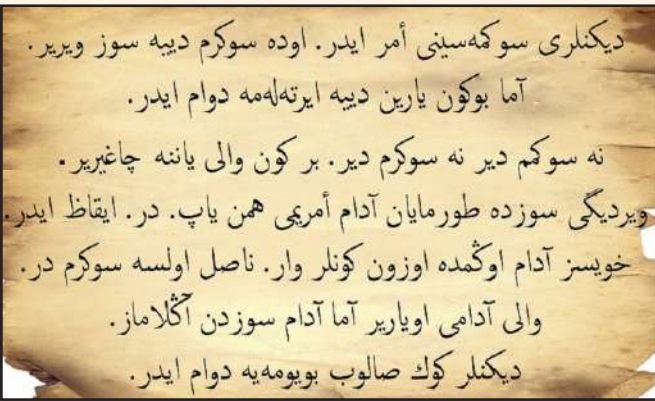 ديكنلرى سوكمه‌سينى أمر ايدر. اوده سوكرم دييه سوز ويرير.
آما بوكون يارين دييه ايرته‌له‌مه دوام ايدر.
نه سوكم دير نه سوكرم دير. بر كون والى ياننه چاغيرير.
ويرديگى سوزده طورمايان آدام أمريمى همن ياپ. در. ايقاظ ايدر.
خويسز آدام اوڭمده اوزون كونلر وار. ناصل اولسه سوكرم در.
والى آدامى اويارير آما آدام سوزدن آڭلاماز.
ديكنلر كوك صالوب بويومه‌يه دوام ايدر.